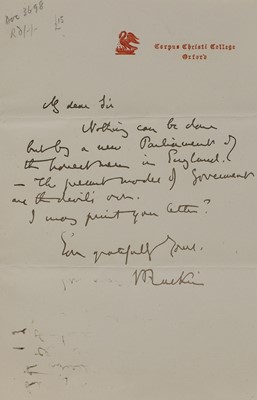 Corpus Christi College
Oxford
My dear Sir
Nothing can be done
but by a new Parliament of
the honest men in England.
— The present modes of Government
are the devil's own.
I may print your letter?
Ever gratefully Yours.
J Ruskin